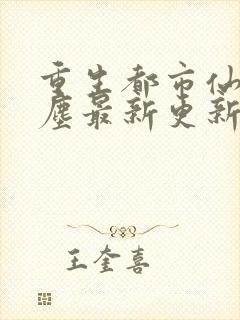 重生都市仙
尘最新更新
王奎喜